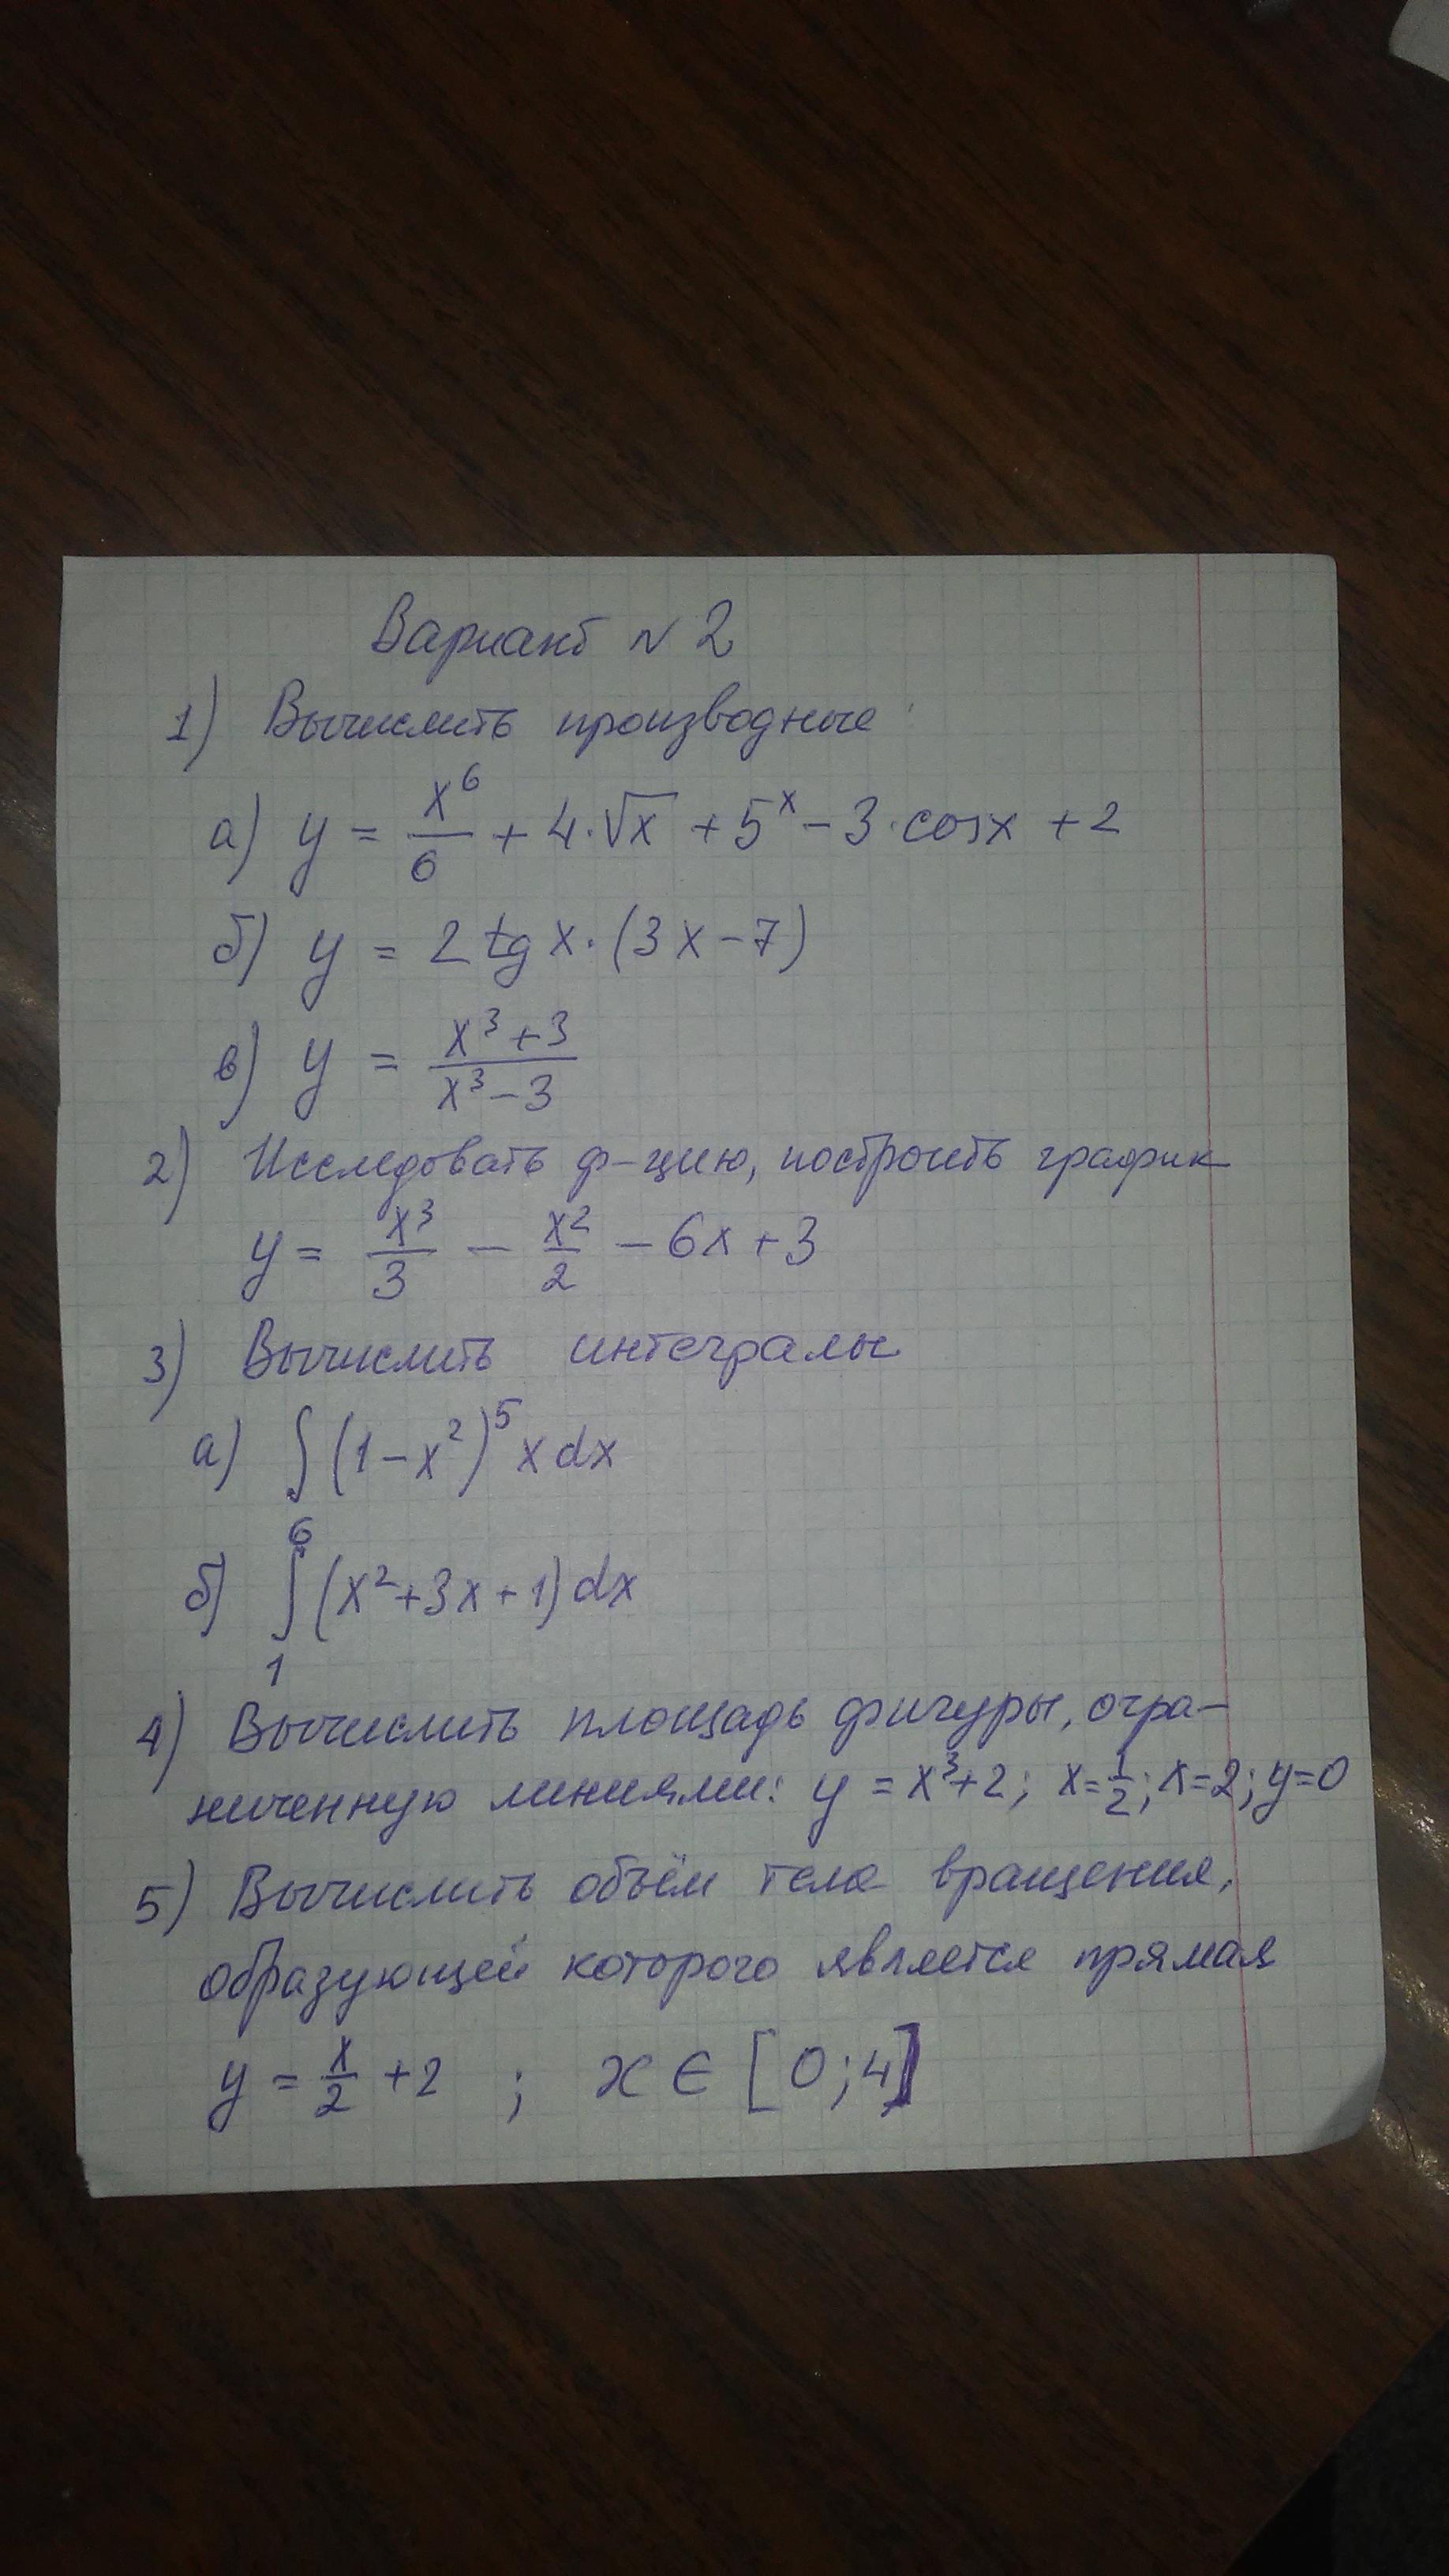 Вариант № 2
1) Вычислить производные:
а) y = x⁶/6 + 4·√x + 5ˣ − 3·cosx + 2
б) y = 2 tg x·(3x − 7)
в) y = (x³ + 3)/(x³ − 3)
2) Исследовать ф-цию, построить график
y = x³/3 − x²/2 − 6x + 3
3) Вычислить интегралы
а) ∫(1 − x²)⁵ x dx
б) ∫₁⁶ (x² + 3x + 1) dx
4) Вычислить площадь фигуры, огра-
ниченную линиями: y = x³ + 2; x = 1/2; x = 2; y = 0
5) Вычислить объём тела вращения,
образующей которого является прямая
y = x/2 + 2 ; x ∈ [0; 4]